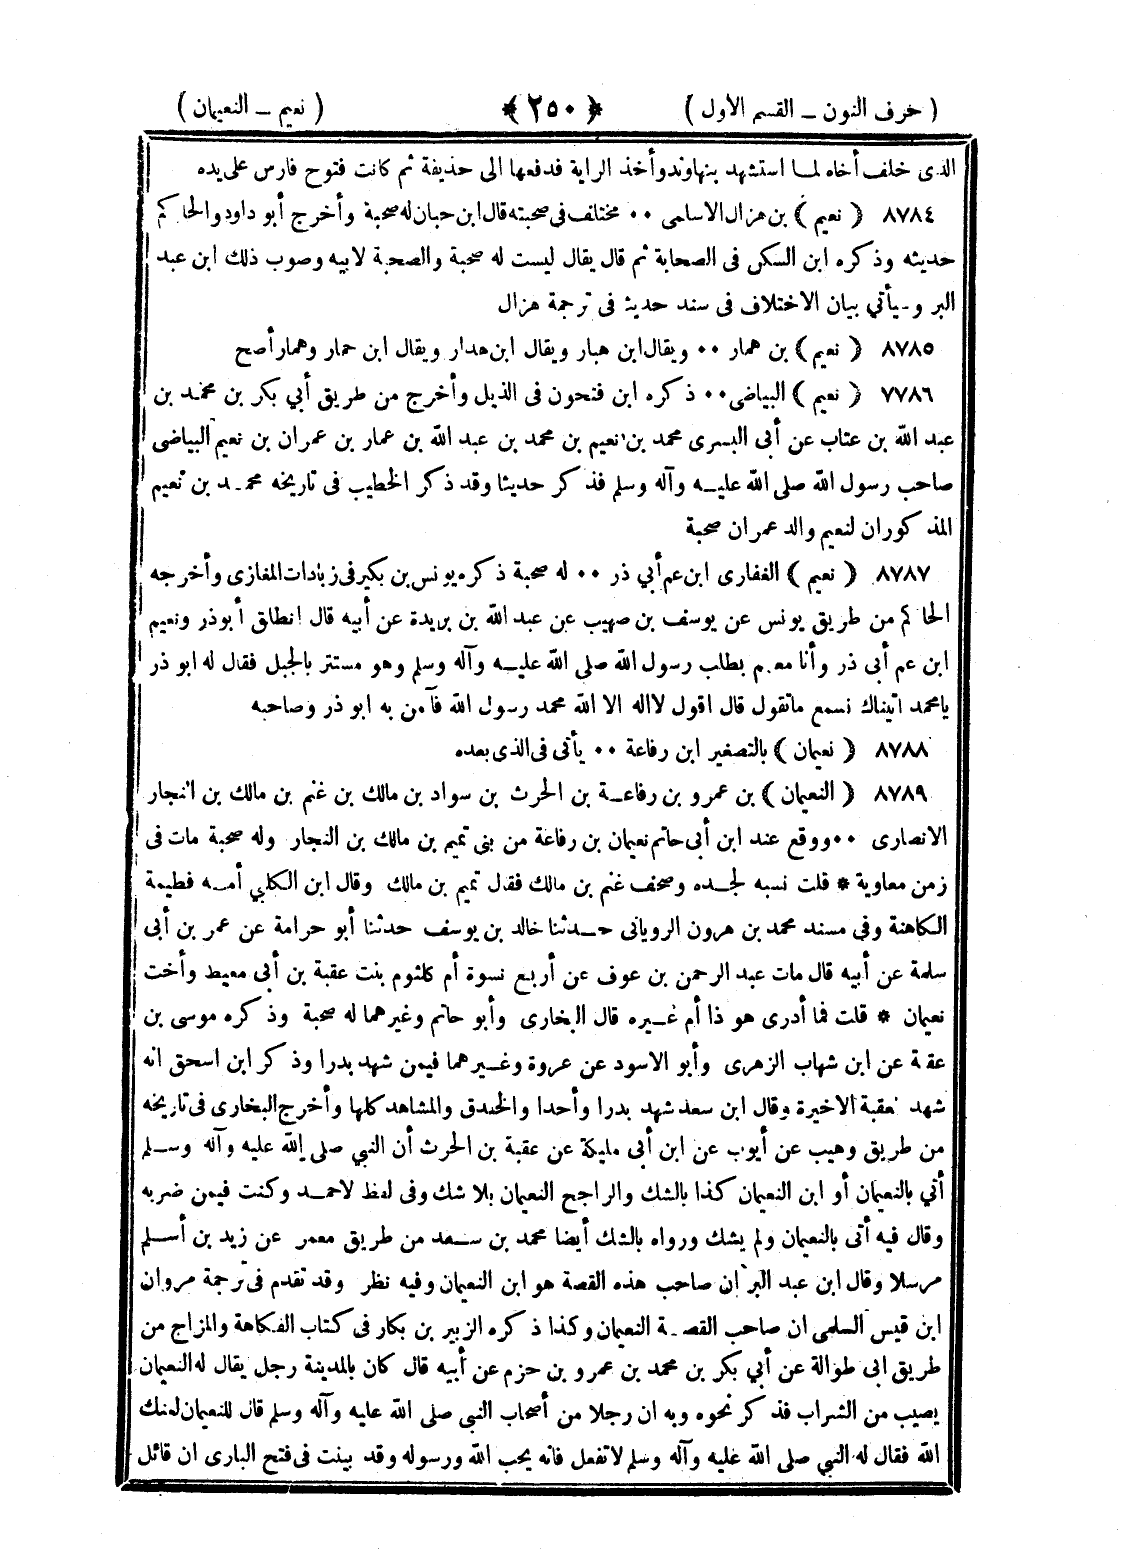 ( حرف النون ــ القسم الأول ) ﴿ ٢٥٠ ﴾ ( نعيم ــ النعيمان )
الذى خلف أخاه لمـا استشهد بنهاوند وأخذ الراية فدفعها الى حذيفة ثم كانت فتوح فارس على يده
٨٧٨٤ ( نعيم ) بن هزال الاسلمى ٠٠ مختلف فى صحبته قال ابن حبان له صحبة وأخرج أبو داود والحاكم
حديثه وذكره ابن السكن فى الصحابة ثم قال يقال ليست له صحبة والصحبة لابيه وصوب ذلك ابن عبد
البر وسيأتي بيان الاختلاف فى سند حديثه فى ترجمة هزال
٨٧٨٥ ( نعيم ) بن همار ٠٠ ويقال ابن هبار ويقال ابن هدار ويقال ابن حمار وهمار أصح
٧٧٨٦ ( نعيم ) البياضى ٠٠ ذكره ابن فتحون فى الذيل وأخرج من طريق أبي بكر بن محمد بن
عبد الله بن عتاب عن أبى اليسرى محمد بن نعيم بن محمد بن عبد الله بن عمار بن عمران بن نعيم البياضى
صاحب رسول الله صلى الله عليـه وآله وسلم فذكر حديثا وقد ذكر الخطيب فى تاريخه محمـد بن نعيم
المذكوران لنعيم والد عمران صحبة
٨٧٨٧ ( نعيم ) الغفارى ابن عم أبي ذر ٠٠ له صحبة ذكره يونس بن بكير فى زيادات المغازى وأخرجه
الحاكم من طريق يونس عن يوسف بن صهيب عن عبد الله بن بريدة عن أبيه قال انطلق أبوذر ونعيم
ابن عم أبى ذر وأنا معهم بطلب رسول الله صلى الله عليـه وآله وسلم وهو مستتر بالجبل فقال له ابو ذر
يامحمد اتيناك نسمع ماتقول قال اقول لااله الا الله محمد رسول الله فآمن به ابو ذر وصاحبه
٨٧٨٨ ( نعيمان ) بالتصغير ابن رفاعة ٠٠ يأتى فى الذى بعده
٨٧٨٩ ( النعيمان ) بن عمرو بن رفاعـة بن الحرث بن سواد بن مالك بن غنم بن مالك بن النجار
الانصارى ٠٠ ووقع عند ابن أبى حاتم نعيمان بن رفاعة من بنى تميم بن مالك بن النجار وله صحبة مات فى
زمن معاوية * قلت نسبه لجـده وصحف غنم بن مالك فقال تميم بن مالك وقال ابن الكلبي أمـه فطيمة
الكاهنة وفى مسند محمد بن هرون الرويانى حـدثنا خالد بن يوسف حدثنا أبو حرامة عن عمر بن أبى
سلمة عن أبيه قال مات عبد الرحمن بن عوف عن أربع نسوة أم كلثوم بنت عقبة بن أبى معيط وأخت
نعيمان * قلت فما أدرى هو ذا أم غـيره قال البخارى وأبو حاتم وغيرهما له صحبة وذكره موسى بن
عقبة عن ابن شهاب الزهرى وأبو الاسود عن عروة وغـيرهما فيمن شهد بدرا وذكر ابن اسحق انه
شهد العقبة الاخيرة وقال ابن سعد شهد بدرا وأحدا والخندق والمشاهد كلها وأخرج البخارى فى تاريخه
من طريق وهيب عن أيوب عن ابن أبى مليكة عن عقبة بن الحرث أن النبي صلى الله عليه وآله وسـلم
أتي بالنعيمان أو ابن النعيمان كذا بالشك والراجح النعيمان بلا شك وفى لفظ لاحمـد وكنت فيمن ضربه
وقال فيه أتى بالنعيمان ولم يشك ورواه بالشك أيضا محمد بن سـعد من طريق معمر عن زيد بن أسـلم
مرسلا وقال ابن عبد البر ان صاحب هذه القصة هو ابن النعيمان وفيه نظر وقد تقدم فى ترجمة مروان
ابن قيس السلمى ان صاحب القصـة النعيمان وكذا ذكره الزبير بن بكار فى كتاب الفكاهة والمزاج من
طريق ابى طوالة عن أبي بكر بن محمد بن عمرو بن حزم عن أبيه قال كان بالمدينة رجل يقال له النعيمان
يصيب من الشراب فذكر نحوه وبه ان رجلا من أصحاب النبي صلى الله عليه وآله وسلم قال للنعيمان لعنك
الله فقال له النبي صلى الله عليه وآله وسلم لاتفعل فانه يحب الله ورسوله وقد بينت فى فتح البارى ان قائل